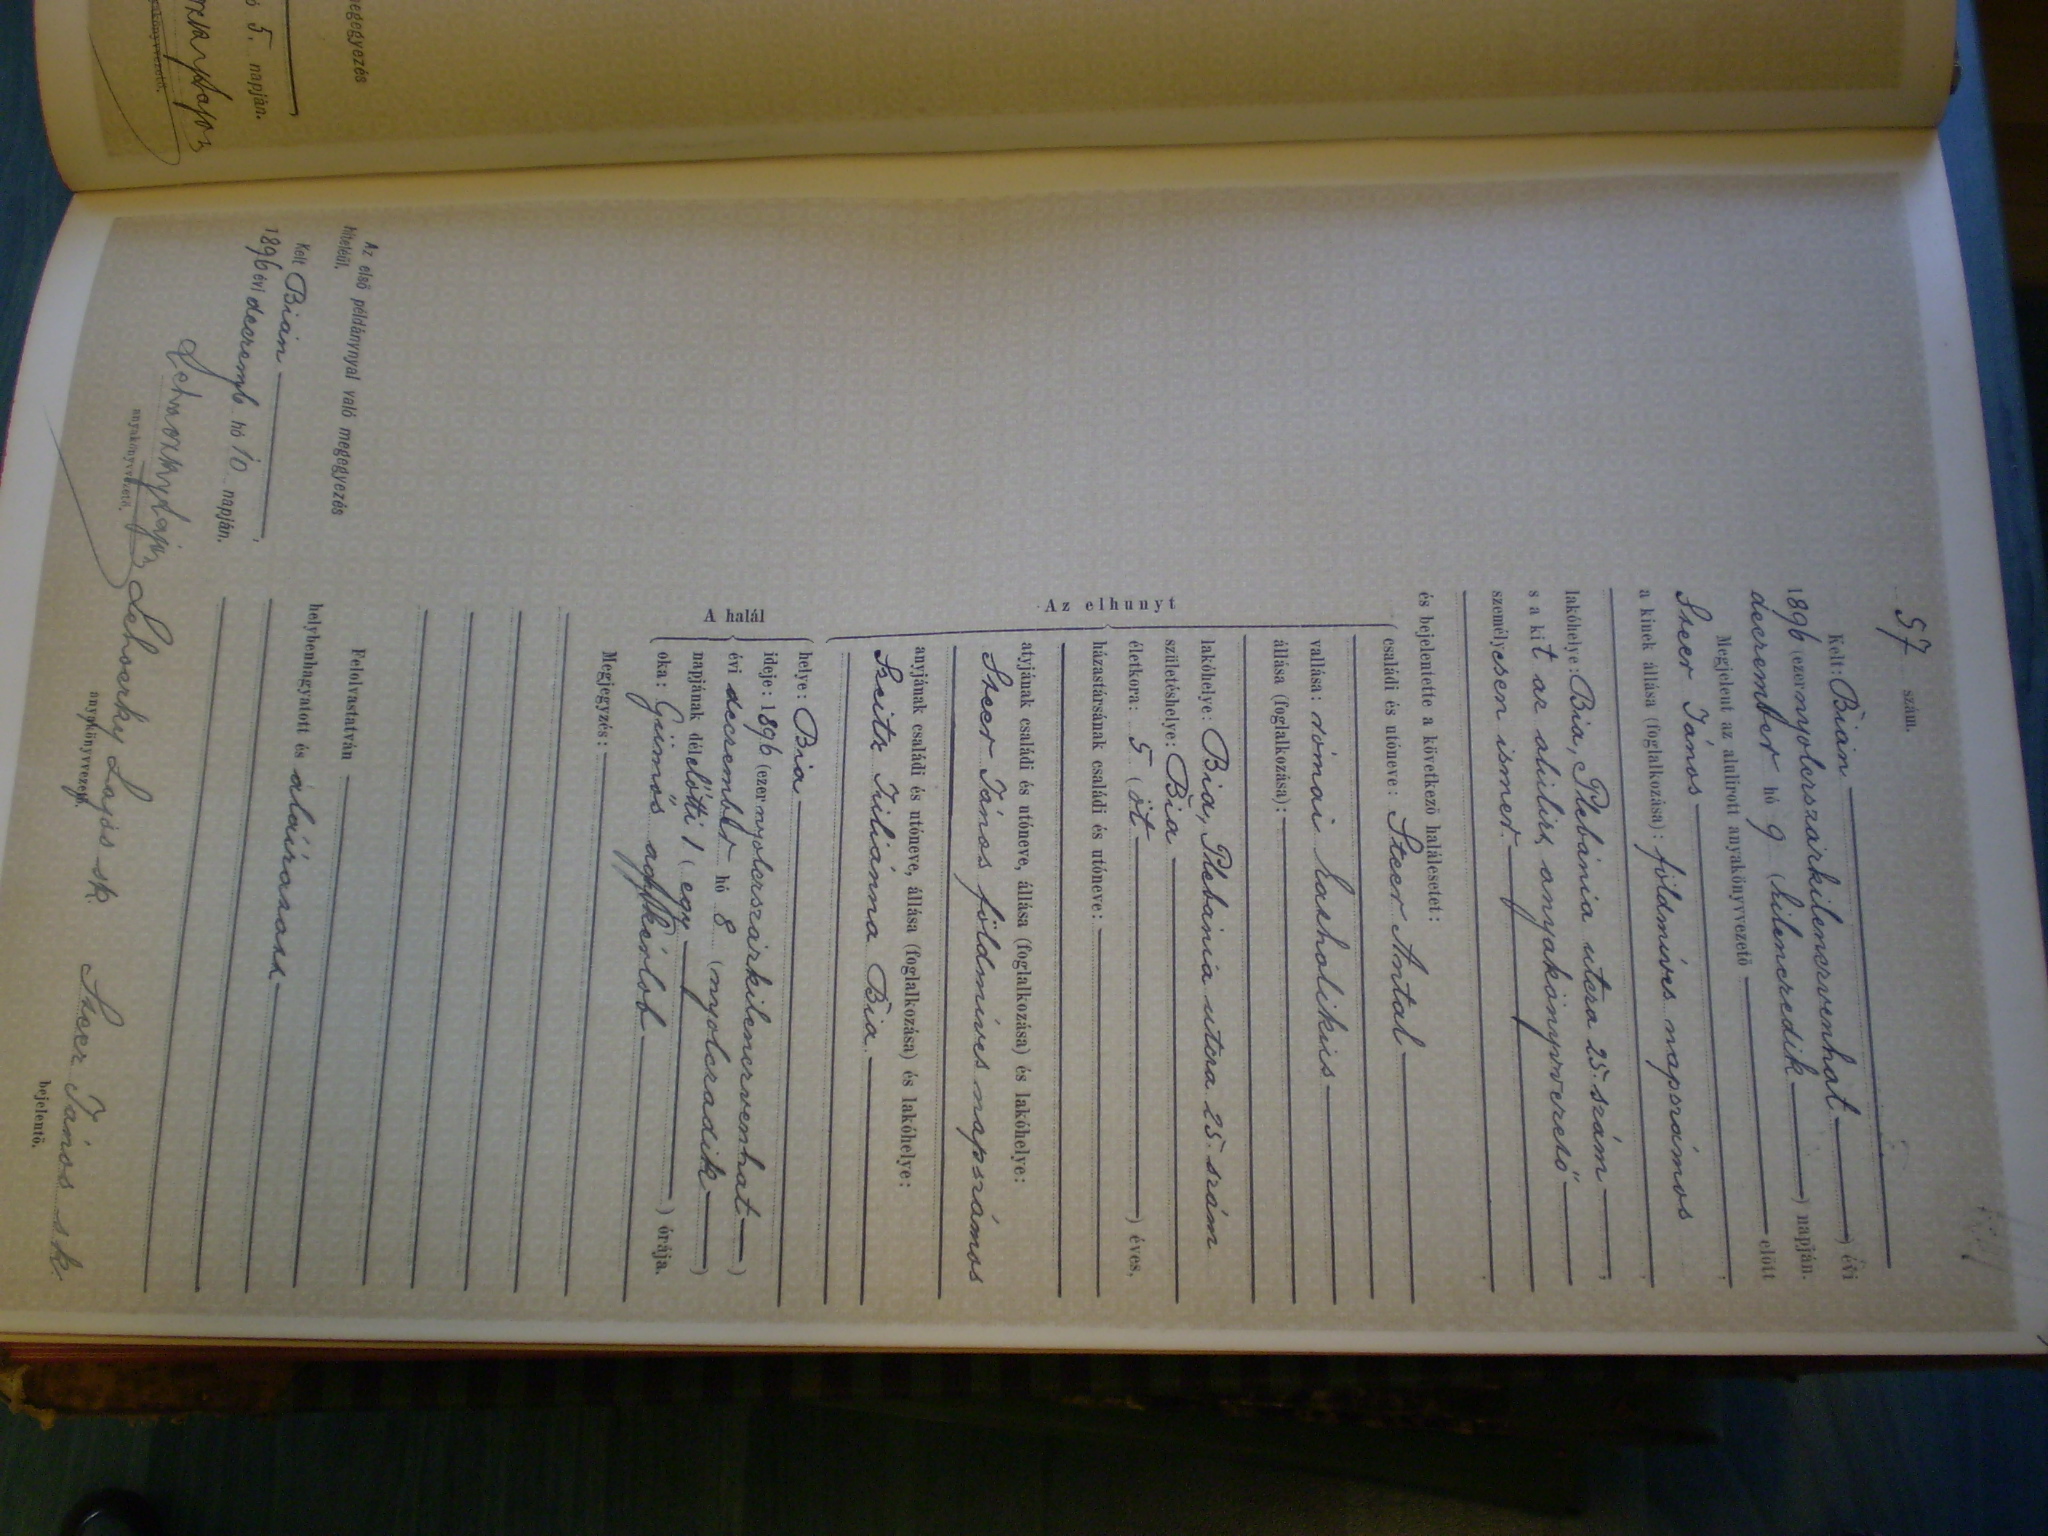 57 szám.
Kelt: Bián (ezernyolczszázkilenczvenhat) évi
1896
december hó 9 (kilenczedik) napján.
Megjelent az alulirott anyakönyvvezető előtt
Steer János
a kinek állása (foglalkozása): földmíves napszámos
lakóhelye: Bia, Plebánia utcza 25. szám
s a kit az alulirt anyakönyvvezető
személyesen ismer
és bejelentette a következő halálesetet:
Az elhunyt
családi és utóneve: Steer Antal
vallása: római katholikus
állása (foglalkozása):
lakóhelye: Bia, Plebánia utcza 25. szám
születéshelye: Bia
életkora: 5 (öt) éves,
házastársának családi és utóneve:
atyjának családi és utóneve, állása (foglalkozása) és lakóhelye:
Steer János földmíves napszámos
anyjának családi és utóneve, állása (foglalkozása) és lakóhelye:
Juliánna Bia
A halál
helye: Bia
ideje: 1896 (ezernyolczszázkilenczvenhat)
évi december hó 8 (nyolczadik)
napjának délelőtti 1 (egy) órája.
oka: Gümős agykérlob
Megjegyzés:
Felolvastatván
helybenhagyatott és aláiratott
Lehoczky Lajos sk. Steer János sk.
anyakönyvvezető. bejelentő.
Az első példánynyal való megegyezés
hiteléül.
Kelt Bián
1896 évi deczemb hó 10 napján.
Lehoczky Lajos
anyakönyvvezető.
megegyezés
5. napján.
anyakönyvvezető.